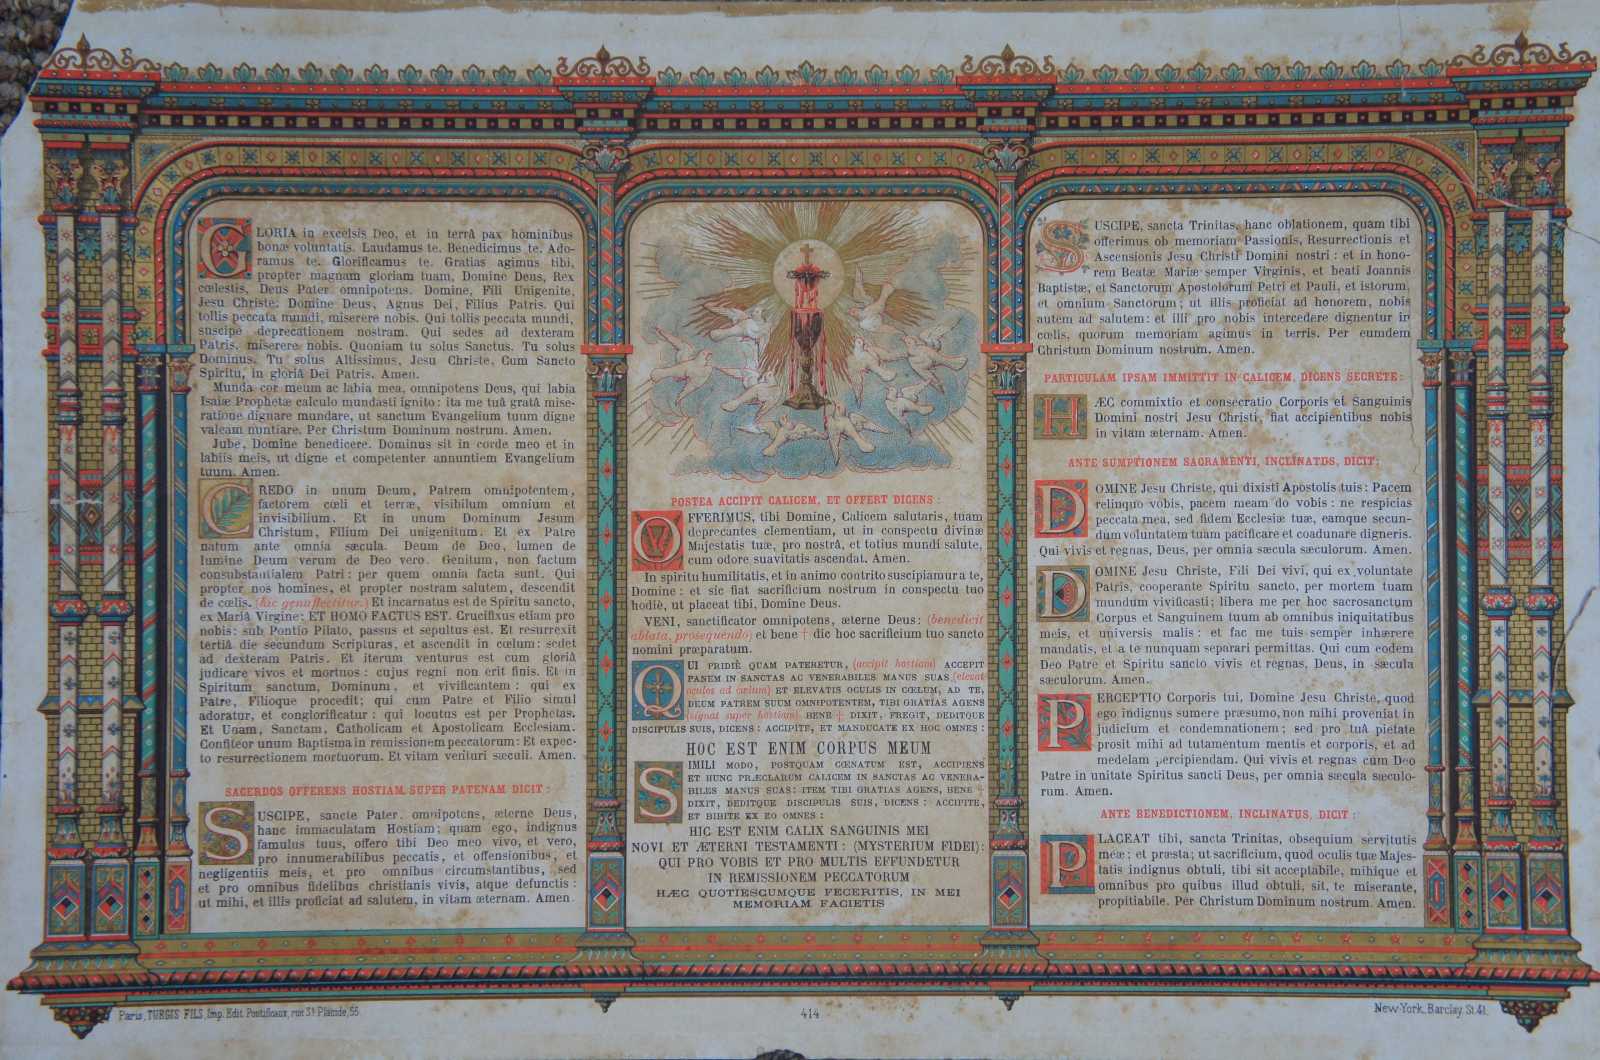 GLORIA in excelsis Deo, et in terrâ pax hominibus
bonæ voluntatis. Laudamus te. Benedicimus te. Ado-
ramus te. Glorificamus te. Gratias agimus tibi,
propter magnam gloriam tuam, Domine Deus, Rex
cœlestis, Deus Pater omnipotens. Domine, Fili Unigenite,
Jesu Christe. Domine Deus, Agnus Dei, Filius Patris. Qui
tollis peccata mundi, miserere nobis. Qui tollis peccata mundi,
suscipe deprecationem nostram. Qui sedes ad dexteram
Patris, miserere nobis. Quoniam tu solus Sanctus. Tu solus
Dominus. Tu solus Altissimus, Jesu Christe, Cum Sancto
Spiritu, in gloriâ Dei Patris. Amen.
Munda cor meum ac labia mea, omnipotens Deus, qui labia
Isaiæ Prophetæ calculo mundasti ignito: ita me tuâ gratâ mise-
ratione dignare mundare, ut sanctum Evangelium tuum digne
valeam nuntiare. Per Christum Dominum nostrum. Amen.
Jube, Domine benedicere. Dominus sit in corde meo et in
labiis meis, ut digne et competenter annuntiem Evangelium
tuum. Amen.
CREDO in unum Deum, Patrem omnipotentem,
factorem cœli et terræ, visibilum omnium et
invisibilium. Et in unum Dominum Jesum
Christum, Filium Dei unigenitum. Et ex Patre
natum ante omnia sæcula. Deum de Deo, lumen de
lumine Deum verum de Deo vero. Genitum, non factum
consubstantialem Patri: per quem omnia facta sunt. Qui
propter nos homines, et propter nostram salutem, descendit
de cœlis. (hic genuflectitur.) Et incarnatus est de Spiritu sancto,
ex Mariâ Virgine: ET HOMO FACTUS EST. Crucifixus etiam pro
nobis: sub Pontio Pilato, passus et sepultus est. Et resurrexit
tertiâ die secundum Scripturas, et ascendit in cœlum: sedet
ad dexteram Patris. Et iterum venturus est cum gloriâ
judicare vivos et mortuos: cujus regni non erit finis. Et in
Spiritum sanctum, Dominum, et vivificantem: qui ex
Patre, Filioque procedit; qui cum Patre et Filio simul
adoratur, et conglorificatur: qui locutus est per Prophetas.
Et Unam, Sanctam, Catholicam et Apostolicam Ecclesiam.
Confiteor unum Baptisma in remissionem peccatorum: Et expec-
to resurrectionem mortuorum. Et vitam venturi sæculi. Amen.
SACERDOS OFFERENS HOSTIAM SUPER PATENAM DICIT:
SUSCIPE, sancte Pater omnipotens, æterne Deus,
hanc immaculatam Hostiam; quam ego, indignus
famulus tuus, offero tibi Deo meo vivo, et vero,
pro innumerabilibus peccatis, et offensionibus, et
negligentiis meis, et pro omnibus circumstantibus, sed
et pro omnibus fidelibus christianis vivis, atque defunctis:
ut mihi, et illis proficiat ad salutem, in vitam æternam. Amen.
POSTEA ACCIPIT CALICEM, ET OFFERT DICENS:
OFFERIMUS, tibi Domine, Calicem salutaris, tuam
deprecantes clementiam, ut in conspectu divinæ
Majestatis tuæ, pro nostrâ, et totius mundi salute,
cum odore suavitatis ascendat. Amen.
In spiritu humilitatis, et in animo contrito suscipiamur a te,
Domine: et sic fiat sacrificium nostrum in conspectu tuo
hodiè, ut placeat tibi, Domine Deus.
VENI, sanctificator omnipotens, æterne Deus: (benedicit
oblata, prosequendo) et bene † dic hoc sacrificium tuo sancto
nomini præparatum.
QUI PRIDIÈ QUAM PATERETUR, (accipit hostiam) ACCEPIT
PANEM IN SANCTAS AC VENERABILES MANUS SUAS (elevat
oculos ad cœlum) ET ELEVATIS OCULIS IN CŒLUM, AD TE,
DEUM PATREM SUUM OMNIPOTENTEM, TIBI GRATIAS AGENS
(signat super hostiam) BENE † DIXIT, FREGIT, DEDITQUE
DISCIPULIS SUIS, DICENS: ACCIPITE, ET MANDUCATE EX HOC OMNES:
HOC EST ENIM CORPUS MEUM
SIMILI MODO, POSTQUAM CŒNATUM EST, ACCIPIENS
ET HUNC PRÆCLARUM CALICEM IN SANCTAS AC VENERA-
BILES MANUS SUAS: ITEM TIBI GRATIAS AGENS, BENE †
DIXIT, DEDITQUE DISCIPULIS SUIS, DICENS: ACCIPITE,
ET BIBITE EX EO OMNES:
HIC EST ENIM CALIX SANGUINIS MEI
NOVI ET ÆTERNI TESTAMENTI: (MYSTERIUM FIDEI):
QUI PRO VOBIS ET PRO MULTIS EFFUNDETUR
IN REMISSIONEM PECCATORUM
HÆC QUOTIESCUMQUE FECERITIS, IN MEI
MEMORIAM FACIETIS
SUSCIPE, sancta Trinitas, hanc oblationem, quam tibi
offerimus ob memoriam Passionis, Resurrectionis et
Ascensionis Jesu Christi Domini nostri: et in hono-
rem Beatæ Mariæ semper Virginis, et beati Joannis
Baptistæ, et Sanctorum Apostolorum Petri et Pauli, et istorum,
et omnium Sanctorum; ut illis proficiat ad honorem, nobis
autem ad salutem: et illi pro nobis intercedere dignentur in
cœlis, quorum memoriam agimus in terris. Per eumdem
Christum Dominum nostrum. Amen.
PARTICULAM IPSAM IMMITTIT IN CALICEM, DICENS SECRETE:
HÆC commixtio et consecratio Corporis et Sanguinis
Domini nostri Jesu Christi, fiat accipientibus nobis
in vitam æternam. Amen.
ANTE SUMPTIONEM SACRAMENTI, INCLINATUS, DICIT:
DOMINE Jesu Christe, qui dixisti Apostolis tuis: Pacem
relinquo vobis, pacem meam do vobis: ne respicias
peccata mea, sed fidem Ecclesiæ tuæ, eamque secun-
dum voluntatem tuam pacificare et coadunare digneris.
Qui vivis et regnas, Deus, per omnia sæcula sæculorum. Amen.
DOMINE Jesu Christe, Fili Dei vivi, qui ex voluntate
Patris, cooperante Spiritu sancto, per mortem tuam
mundum vivificasti; libera me per hoc sacrosanctum
Corpus et Sanguinem tuum ab omnibus iniquitatibus
meis, et universis malis: et fac me tuis semper inhærere
mandatis, et a te nunquam separari permittas. Qui cum eodem
Deo Patre et Spiritu sancto vivis et regnas, Deus, in sæcula
sæculorum. Amen.
PERCEPTIO Corporis tui, Domine Jesu Christe, quod
ego indignus sumere præsumo, non mihi proveniat in
judicium et condemnationem; sed pro tuâ pietate
prosit mihi ad tutamentum mentis et corporis, et ad
medelam percipiendam. Qui vivis et regnas cum Deo
Patre in unitate Spiritus sancti Deus, per omnia sæcula sæculo-
rum. Amen.
ANTE BENEDICTIONEM, INCLINATUS, DICIT:
PLACEAT tibi, sancta Trinitas, obsequium servitutis
meæ; et præsta; ut sacrificium, quod oculis tuæ Majes-
tatis indignus obtuli, tibi sit acceptabile, mihique et
omnibus pro quibus illud obtuli, sit, te miserante,
propitiabile. Per Christum Dominum nostrum. Amen.
Paris, TURGIS FILS, Imp. Edit. Pontificaux, rue St. Placide, 55.
414
New-York, Barclay St. 41.